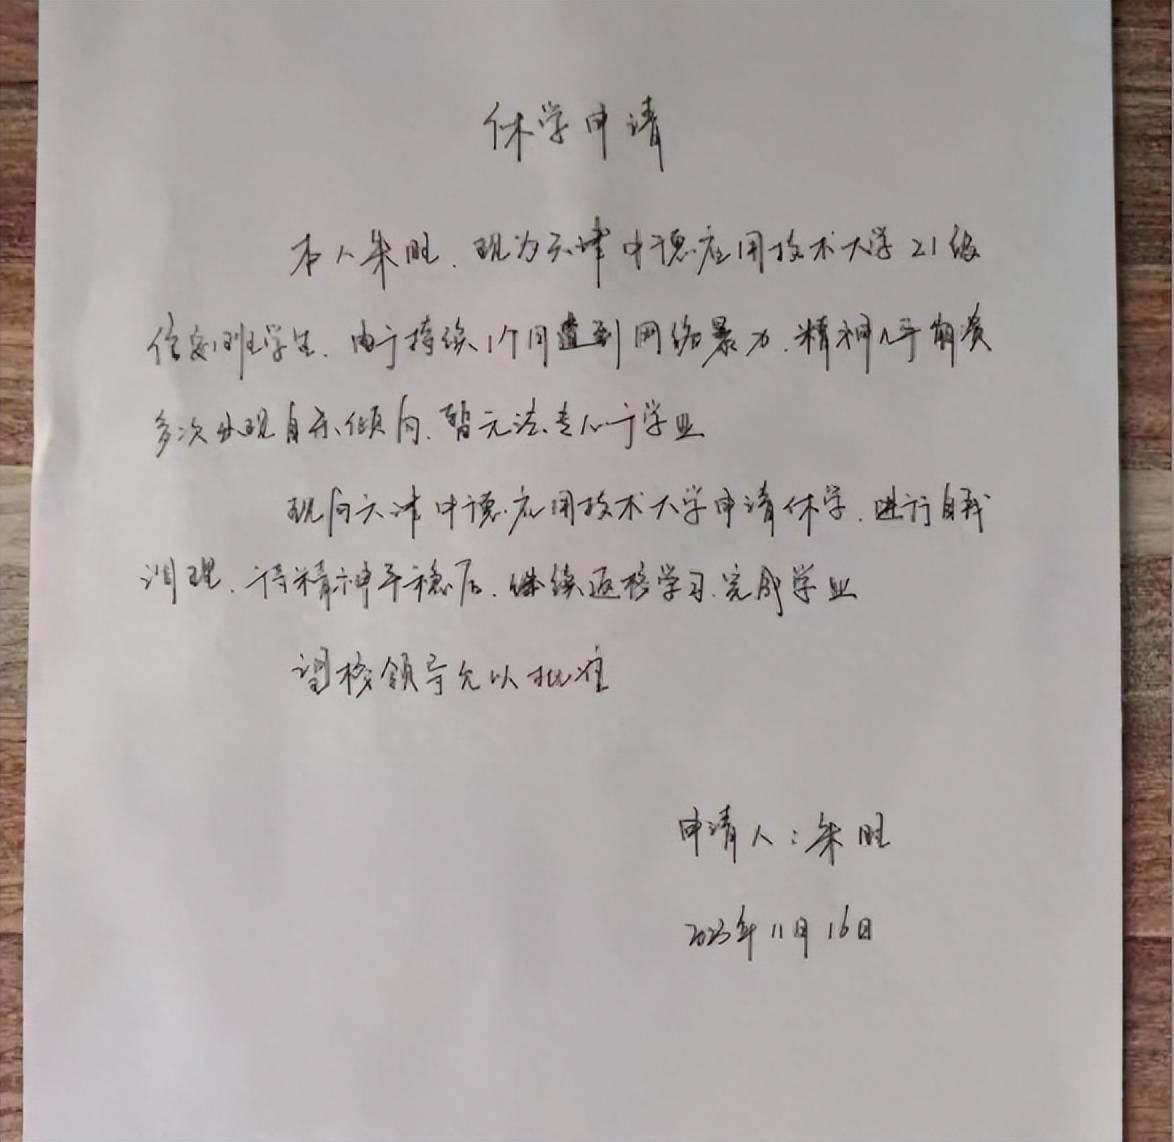 休学申请
本人朱旺、现为天津中德应用技术大学21级
信安班学生、由于持续1个月遭到网络暴力、精神几乎崩溃
多次出现自杀倾向、暂无法专心于学业
现向天津中德应用技术大学申请休学、进行自我
调理、待精神平稳后、继续返校学习、完成学业
望校领导允以批准
申请人：朱旺
2023年11月16日